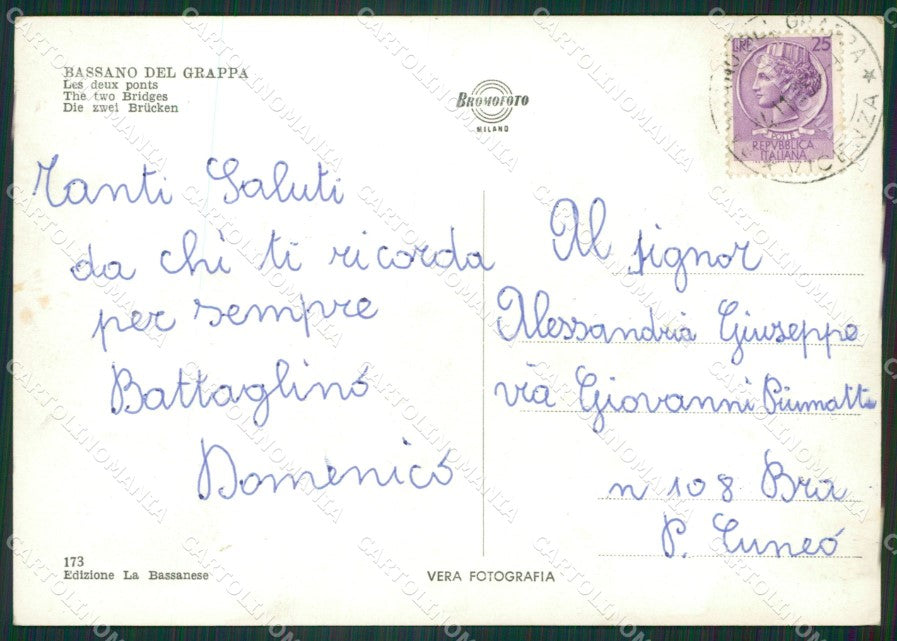 BASSANO DEL GRAPPA
Les deux ponts
The two Bridges
Die zwei Brücken
BROMOFOTO
MILANO
LIRE 25
POSTE
REPVBBLICA
ITALIANA
VICENZA
Tanti Saluti
da chi ti ricorda
per sempre
Battaglinó
Domenicó
Al signor
Alessandria Giuseppe
via Giovanni Piumatti
n 108 Bra
P. Cuneó
173
Edizione La Bassanese
VERA FOTOGRAFIA
CARTOLINOMANIA